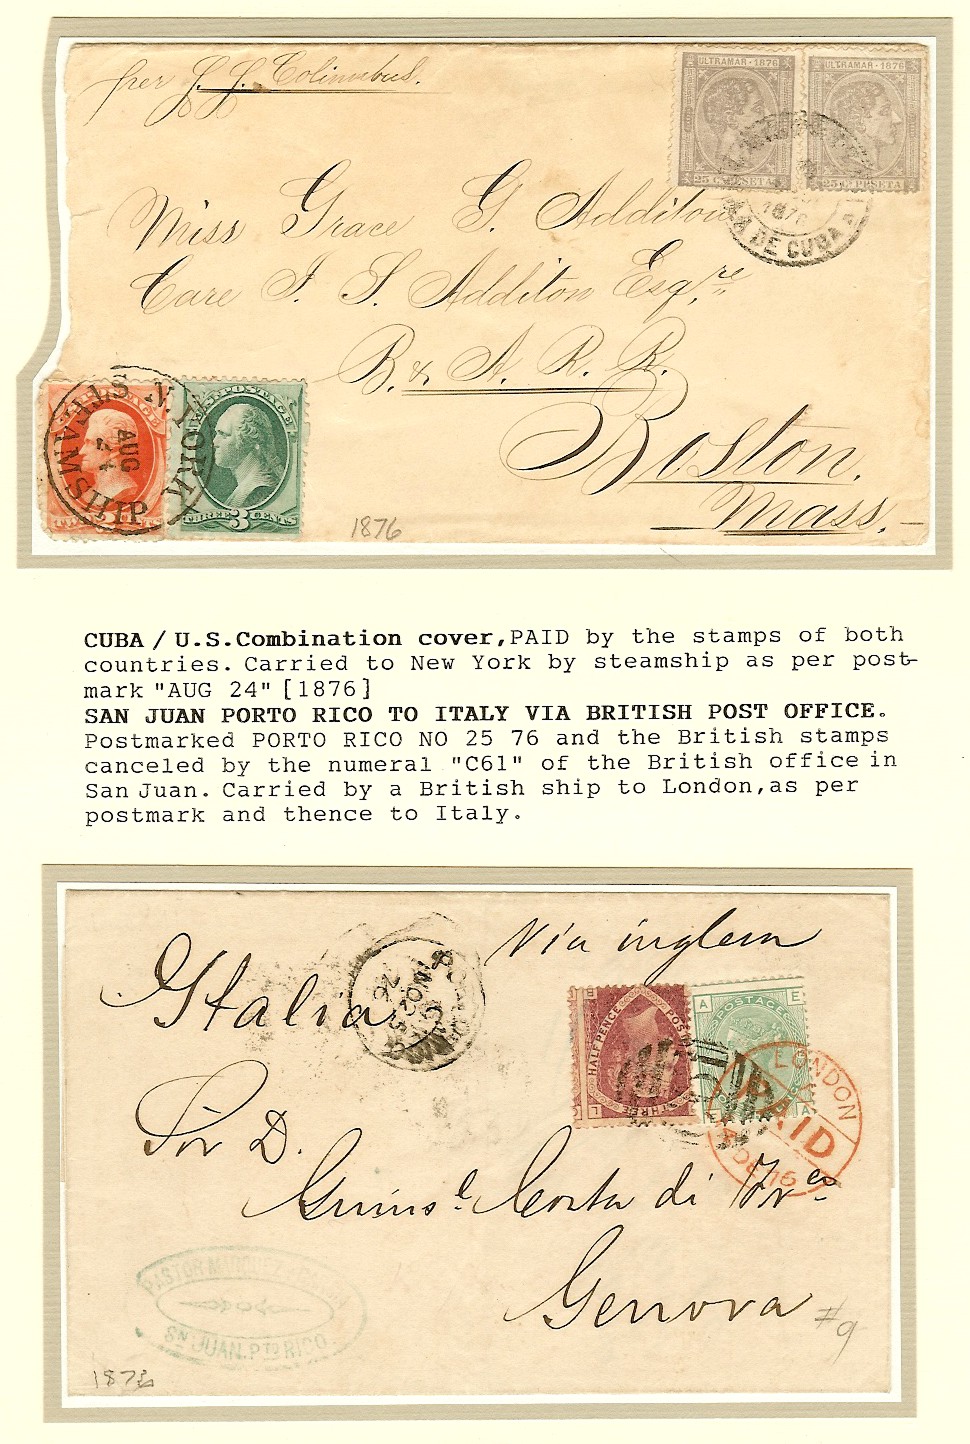 per S. S. Columbus.
ULTRAMAR · 1876
25 Cs PESETA
ULTRAMAR · 1876
25 Cs PESETA
1876
DE CUBA
Miss Grace G. Additon
Care I. S. Additon Esq,re
B. & A. R. R.
Boston,
Mass,
N. YORK
STEAMSHIP
AUG
24
TWO CENTS
U.S. POSTAGE
THREE 3 CENTS
1876
CUBA / U.S.Combination cover,PAID by the stamps of both
countries. Carried to New York by steamship as per post-
mark "AUG 24" [1876]
SAN JUAN PORTO RICO TO ITALY VIA BRITISH POST OFFICE.
Postmarked PORTO RICO NO 25 76 and the British stamps
canceled by the numeral "C61" of the British office in
San Juan. Carried by a British ship to London,as per
postmark and thence to Italy.
Via inglesa
Italia
NO 25
76
HALF PENCE
POSTAGE
THREE
POSTAGE
A E
E A
LONDON
PAID
DE 76
Sor D.
Giunis.e Costa di Fr.co
Genova
#9
PASTOR MARQUEZ
SN JUAN. PTO RICO
1873